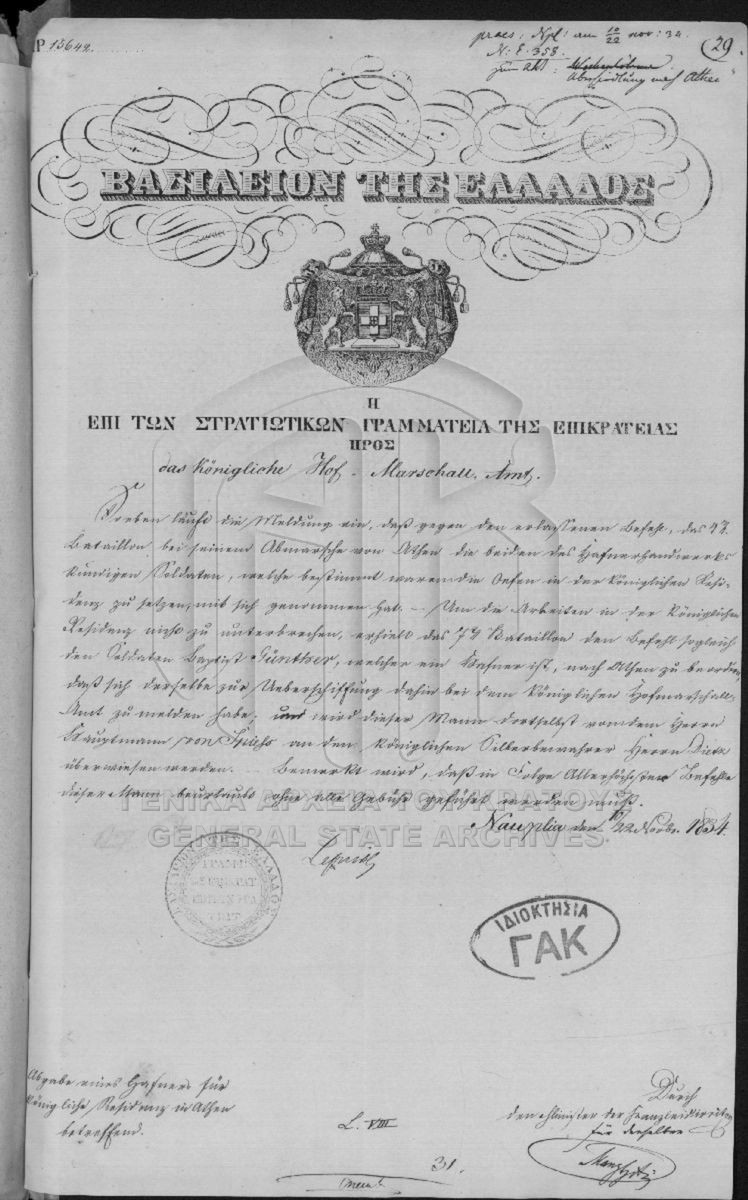 15642
praes: Npl: am 10/22 nov: 34
N: E. 358.
zum Akt:
Übersiedlung nach Athen
29
ΒΑΣΙΛΕΙΟΝ ΤΗΣ ΕΛΛΑΔΟΣ
Η
ΕΠΙ ΤΩΝ ΣΤΡΑΤΙΩΤΙΚΩΝ ΓΡΑΜΜΑΤΕΙΑ ΤΗΣ ΕΠΙΚΡΑΤΕΙΑΣ
ΠΡΟΣ
das Königliche Hof-Marschall-Amt.
Soeben läuft die Meldung ein, daß gegen den erlassenen Befehl, das
Bataillon bei seinem Abmarsche von Athen die beiden des Hafnerhandwerks
kundigen Soldaten, welche bestimmt waren die Oefen in der Königlichen Resi-
denz zu setzen, mit sich genommen hat. – Um die Arbeiten in der Königlichen
Residenz nicht zu unterbrechen, erhielt das 7te Bataillon den Befehl sogleich
den Soldaten Baptist Günther, welcher ein Hafner ist, nach Athen zu beordern,
daß sich derselbe zur Ueberschiffung dahin bei dem Königlichen Hofmarschall-
Amt zu melden habe; und wird dieser Mann dortselbst von dem Herrn
Hauptmann von an den Königlichen Silberbewahrer Herrn
überwiesen werden. – Bemerkt wird, daß in Folge Allerhöchsten Befehls
dieser Mann beurlaubt ohne alle Gebühr geführt werden muß.
Nauplia den 10/22 Novbr. 1834.
Lesuire
ΓΕΝΙΚΑ ΑΡΧΕΙΑ ΤΟΥ ΚΡΑΤΟΥΣ
GENERAL STATE ARCHIVES
ΙΔΙΟΚΤΗΣΙΑ
ΓΑΚ
Abgabe eines Hafners für
Königliche Residenz in Athen
betreffend.
L. VIII
31.
Durch
den Minister der Kanzleidirektor
für denselben